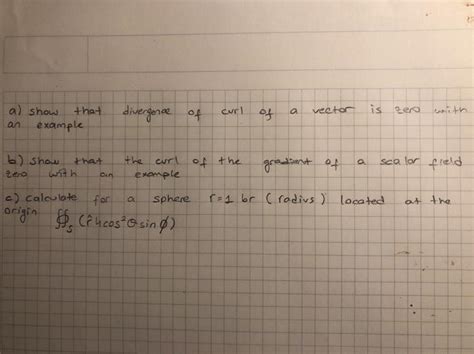 a) show that divergence of curl of a vector is zero with
an example
b) show that the curl of the gradient of a scalar field
zero with an example
c) calculate for a sphere r=1 br (radius) located at the
origin ∯s (r̂ 4cos²θ sinϕ)